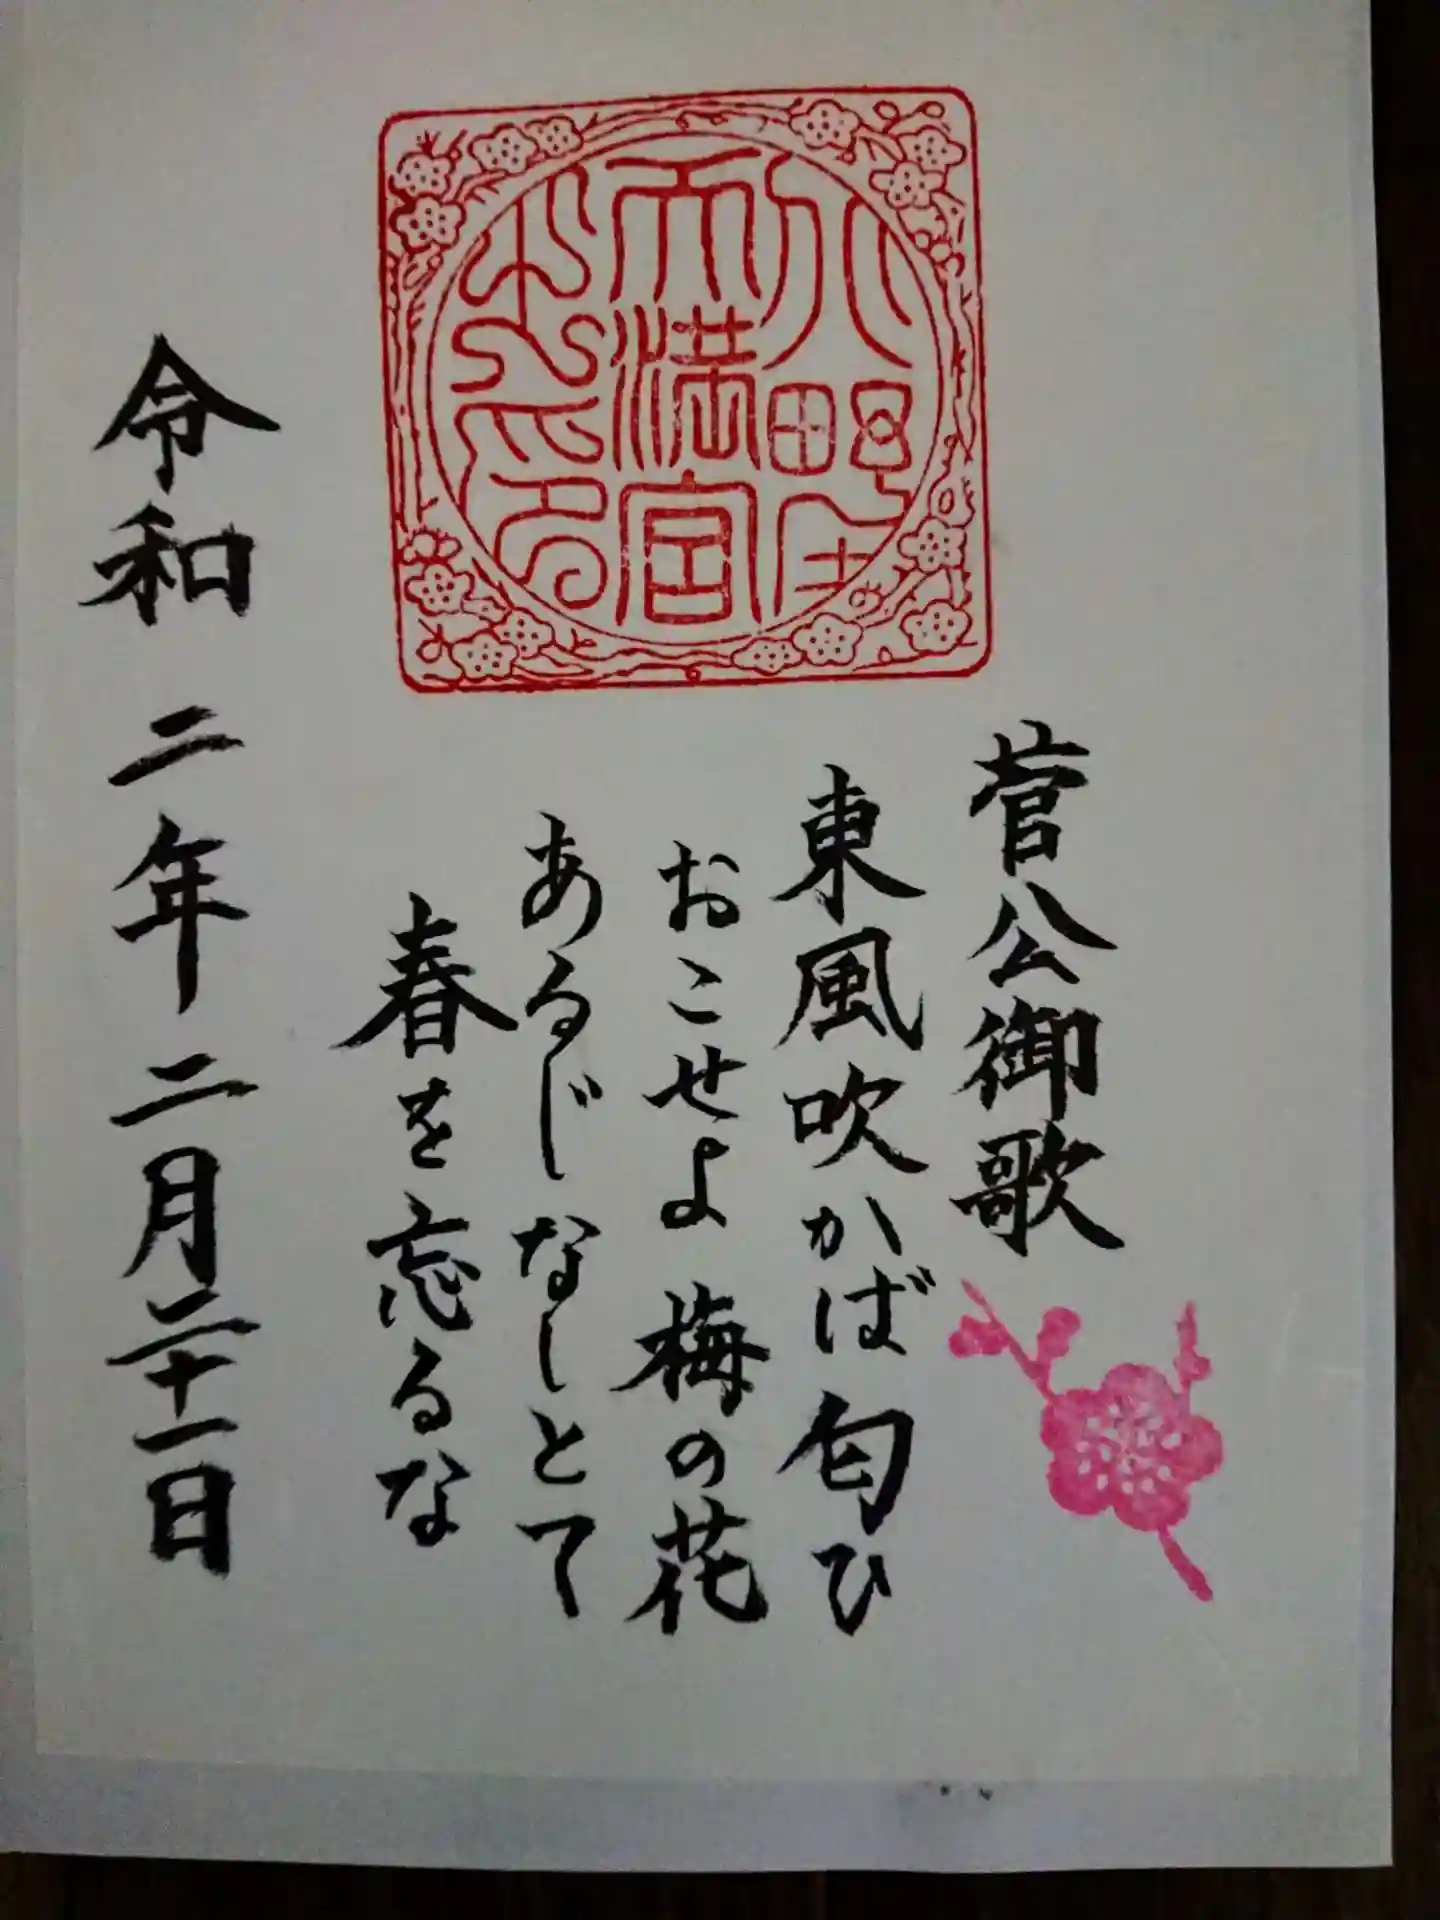 野庄
天満宮
之印
菅公御歌
東風吹かば匂ひ
おこせよ梅の花
あるじなしとて
春を忘るな
令和二年二月二十一日